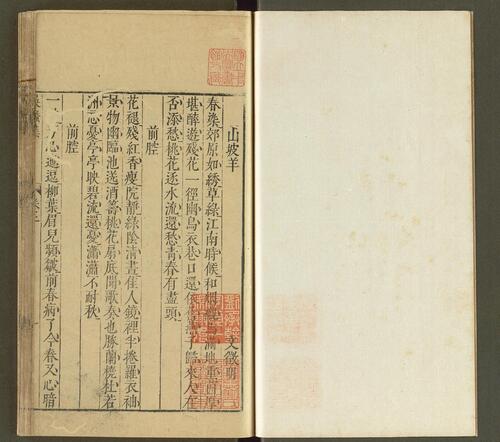 山坡羊
文徵明
春染郊原如綉草綠江南時候和煙
滿地重茵厚
堪醉遊殘花一徑幽烏衣巷口還
歸來人在
否添愁桃花逐水流還愁青春有盡頭
前腔
花褪殘紅香瘦院靜綠陰清晝佳人鏡裡半捲羅衣袖
景物幽臨池送酒籌桃花扇底開歌奏也勝蘭橈杜若
洲心憂亭亭映碧流還憂瀟瀟不耐秋
前腔
心逗逗柳葉眉兒頻皺前春病了今春又心暗